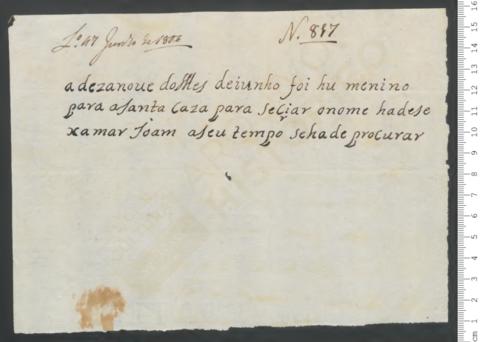 Lº 47 Junho de 1802 Nº 817
a dezanoue do Mes deiunho foi hu menino
para asanta Caza para seCriar onome hadese
xamar Joam aseu tempo sehade procurar
16
15
14
13
12
11
10
9
8
7
6
5
4
3
2
1
cm